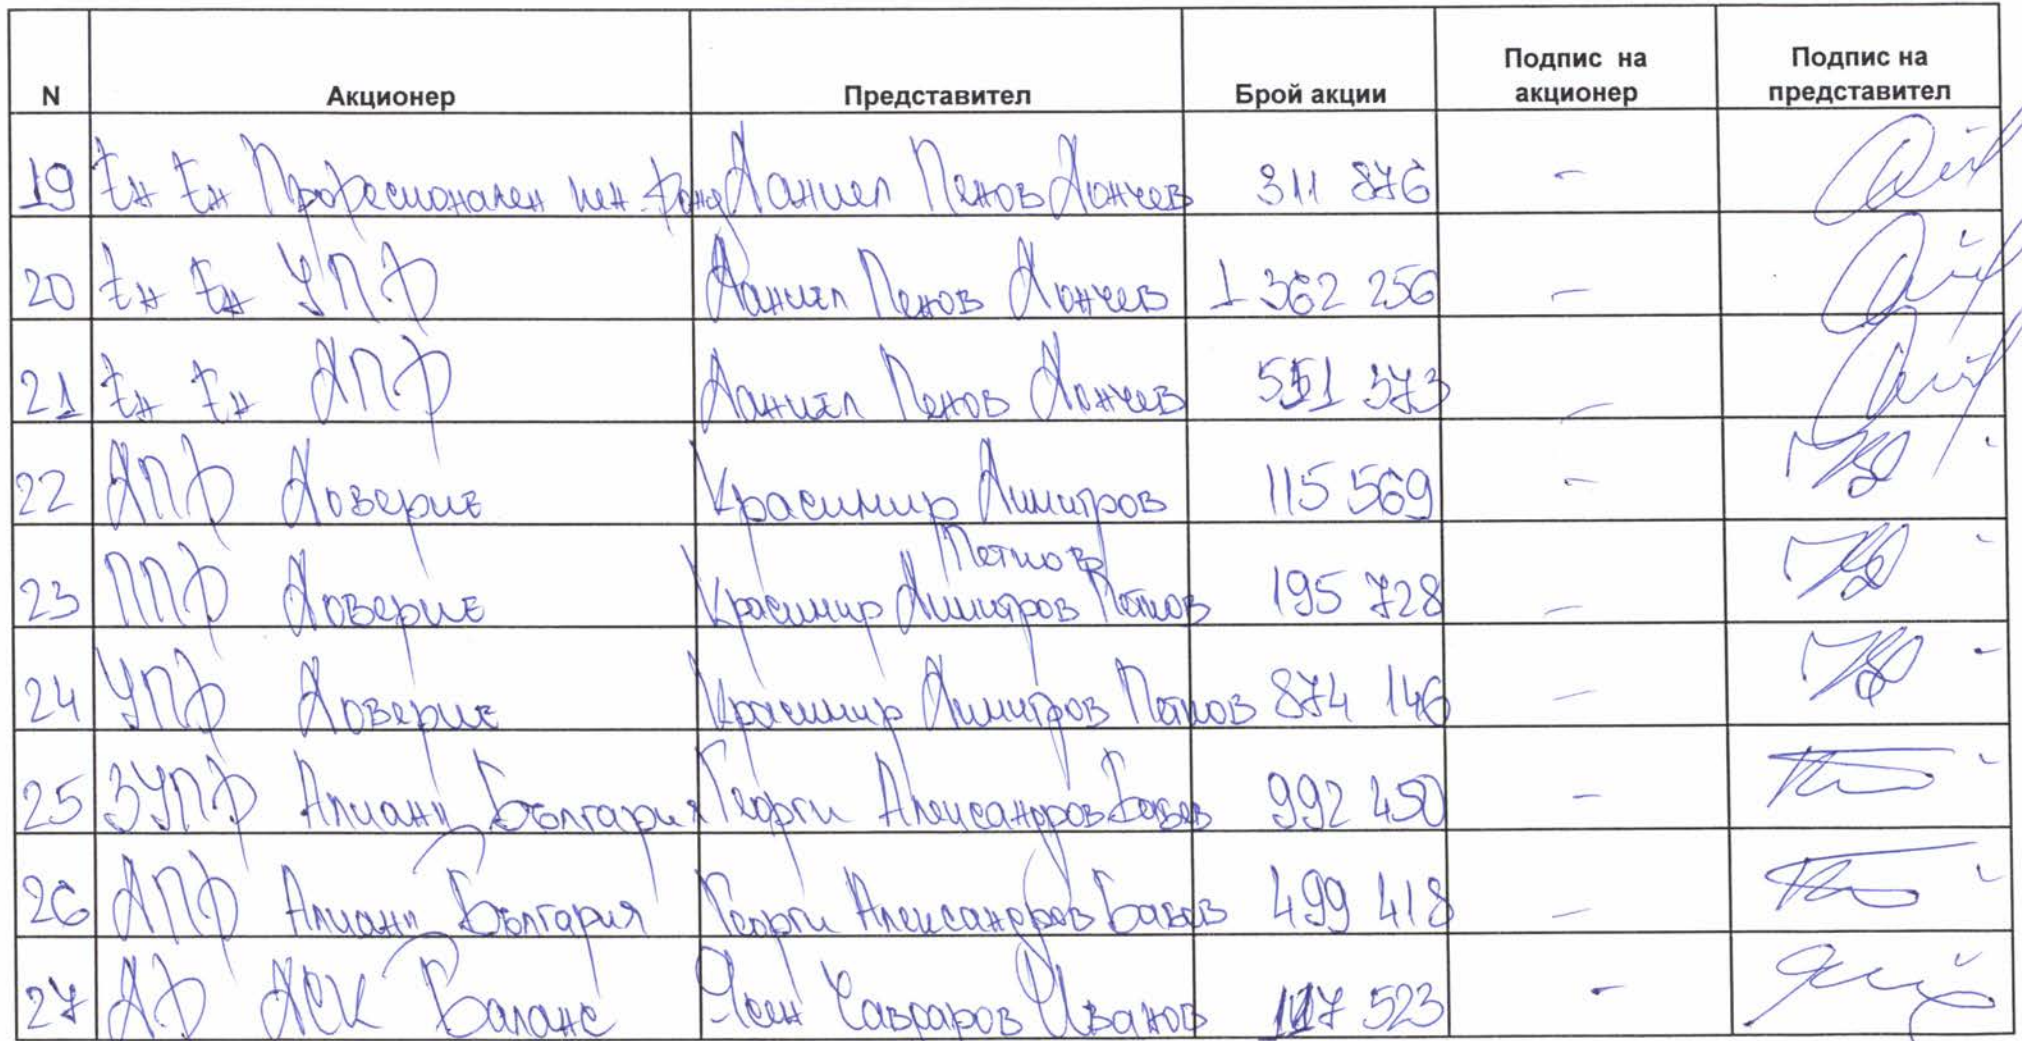 N Акционер Представител Брой акции Подпис на акционер Подпис на представител
19 Ен Ен Професионален пен. фонд Даниел Пенов Дончев 311 876 -
20 Ен Ен УПФ Даниел Пенов Дончев 1 362 256 -
21 Ен Ен ДПФ Даниел Пенов Дончев 551 573 -
22 ДПФ Доверие Красимир Димитров Петков 115 569 -
23 ППФ Доверие Красимир Димитров Петков 195 728 -
24 УПФ Доверие Красимир Димитров Петков 874 146 -
25 ЗУПФ Алианц България Георги Александров Бабев 992 450 -
26 ДПФ Алианц България Георги Александров Бабев 499 418 -
27 ДФ ДСК Баланс Ясен Иванов 523 -